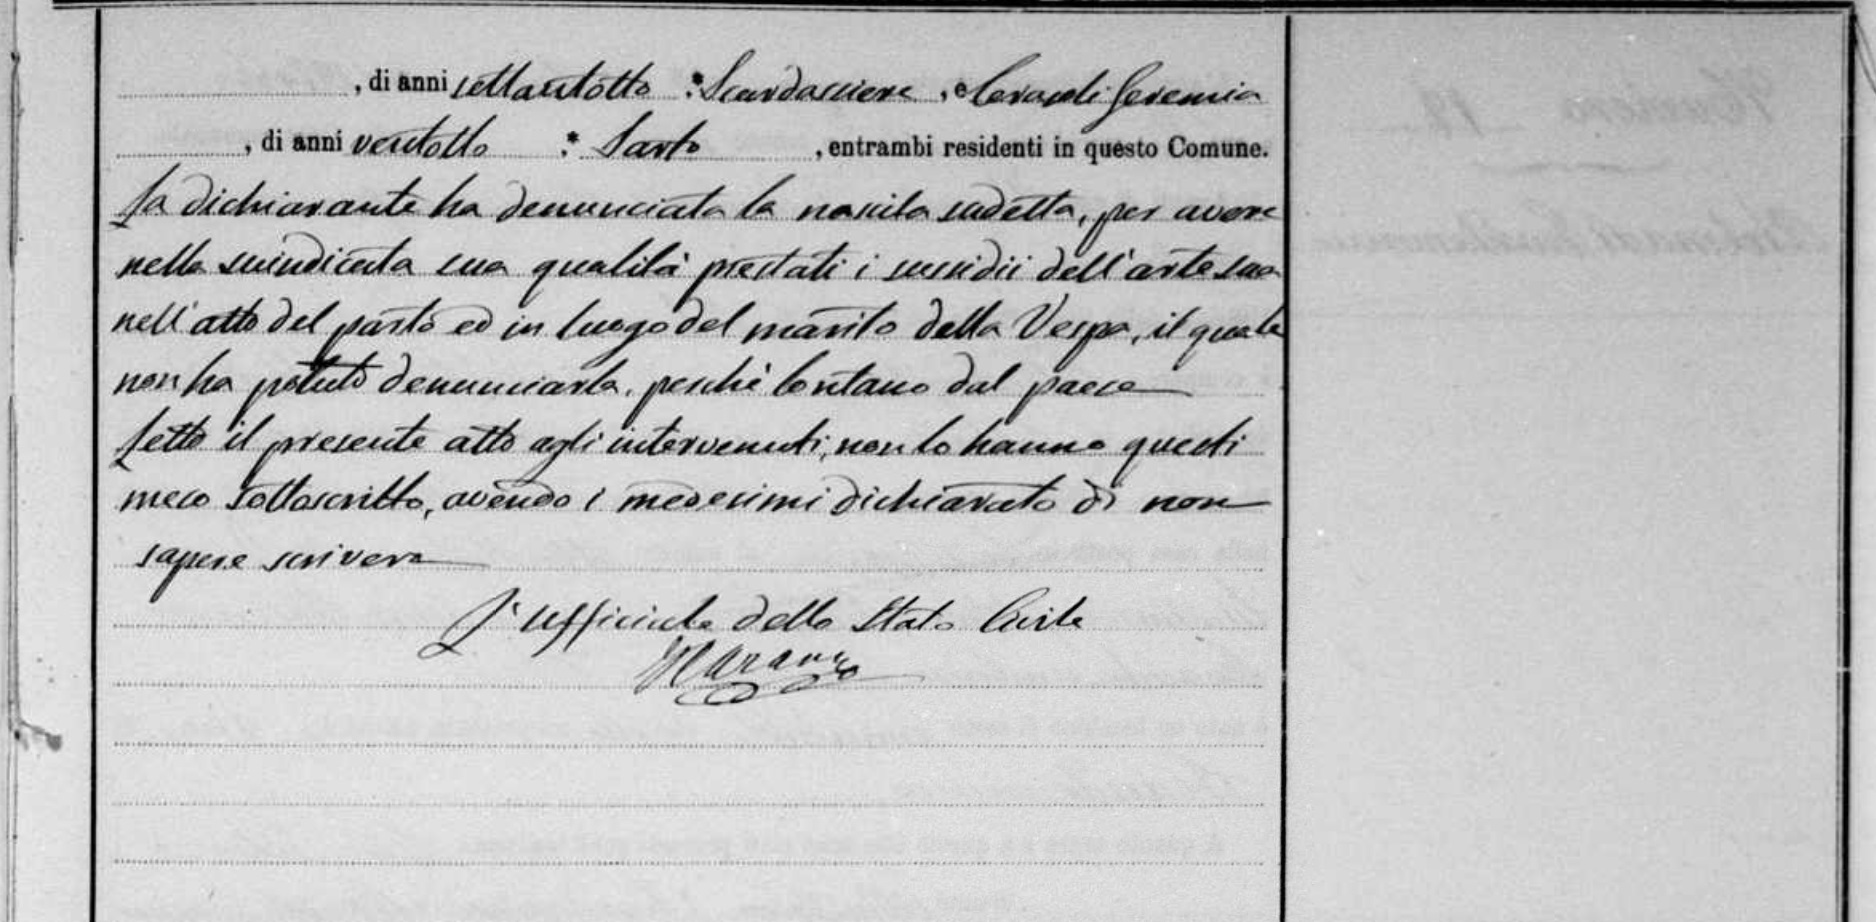 , di anni settantotto : Scardassiere , e Ceraldi Geremia
, di anni ventotto : Sarto , entrambi residenti in questo Comune.
La dichiarante ha denunciata la nascita sudetta, per avere
nella suindicata sua qualità prestati i sussidii dell'arte sua
nell'atto del parto ed in luogo del marito della Vespa, il quale
non ha potuto denunciarla, perchè lontano dal paese
Letto il presente atto agli intervenuti, non lo hanno questi
meco sottoscritto, avendo i medesimi dichiarato di non
sapere scrivere
L'Ufficiale dello Stato Civile